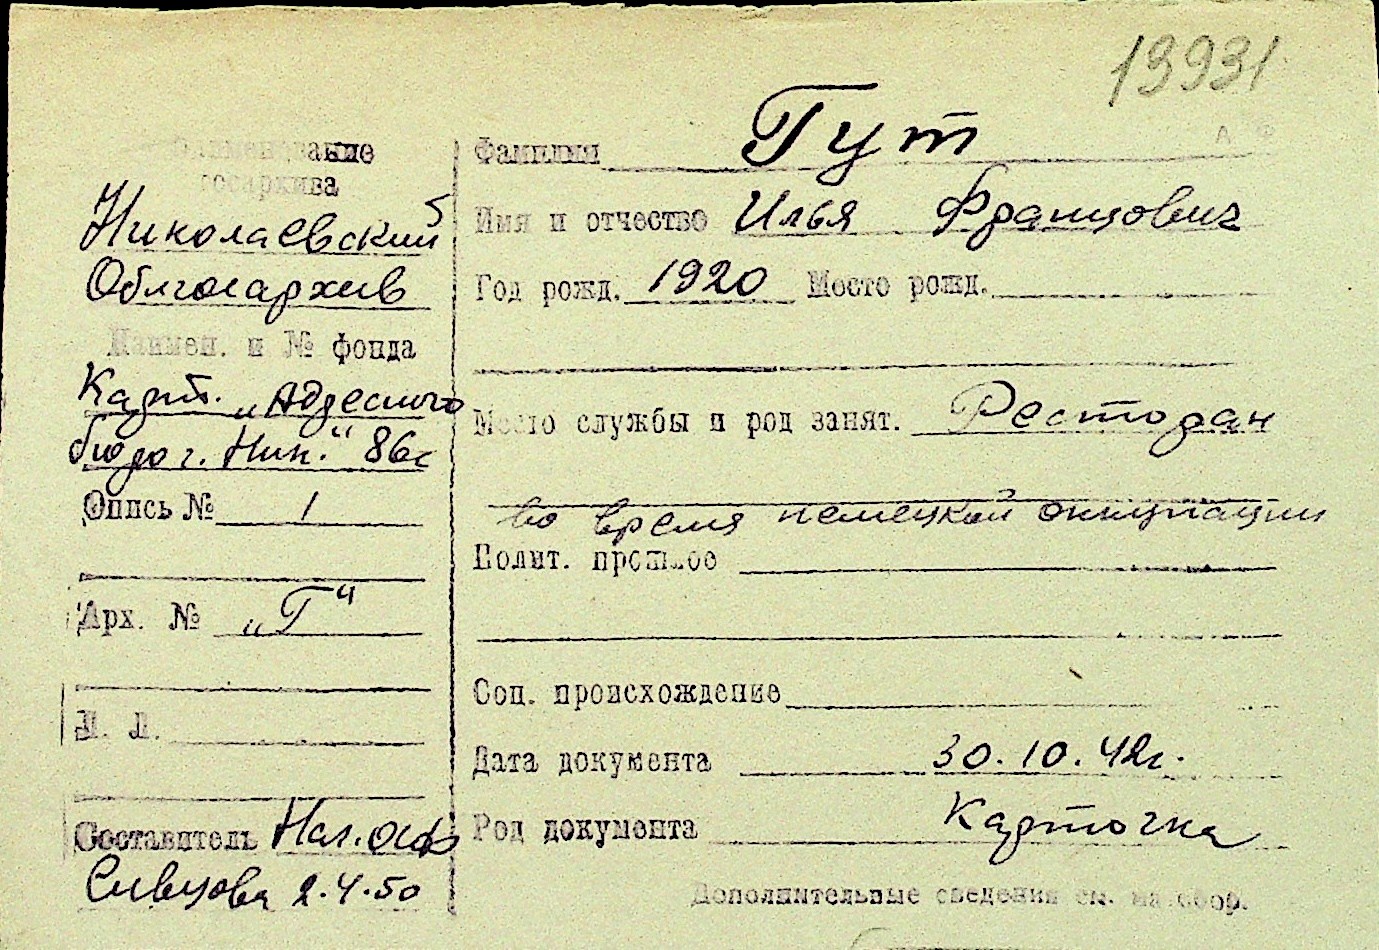 13931
Наименование
госархива
Николаевский
Облгосархив
Наимен. и № фонда
Карт. „Адресного
бюро г. Ник." 86с
Опись № 1
Арх. № „Г"
Л. Л.
Составитель Нач.
Сивцова 2.4.50
Фамилия Гут
Имя и отчество Илья Францович
Год рожд. 1920 Место рожд.
Место службы и род занят. Ресторан
во время немецкой оккупации
Полит. прошлое
Соц. происхождение
Дата документа 30.10.42г.
Род документа Карточка
Дополнительные сведения см. на обор.